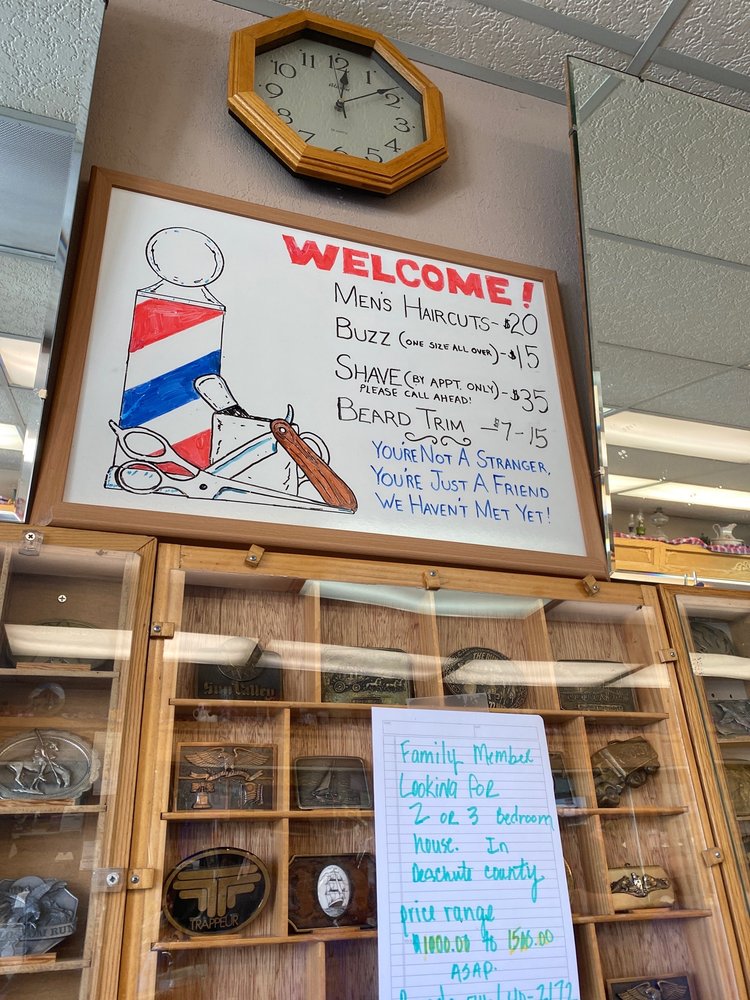 12
11
1
10
2
9
3
8
4
7
5
QUARTZ
WELCOME!
MEN'S HAIRCUTS-$20
BUZZ (ONE SIZE ALL OVER)-$15
SHAVE (BY APPT. ONLY)-$35
PLEASE CALL AHEAD!
BEARD TRIM -$7-15
YOU'RE NOT A STRANGER,
YOU'RE JUST A FRIEND
WE HAVEN'T MET YET!
Sun Valley
TRAPPEUR
Family Member
Looking For
2 or 3 Bedroom
house. In
Deschute county
price range
$1000.00 to
ASAP.